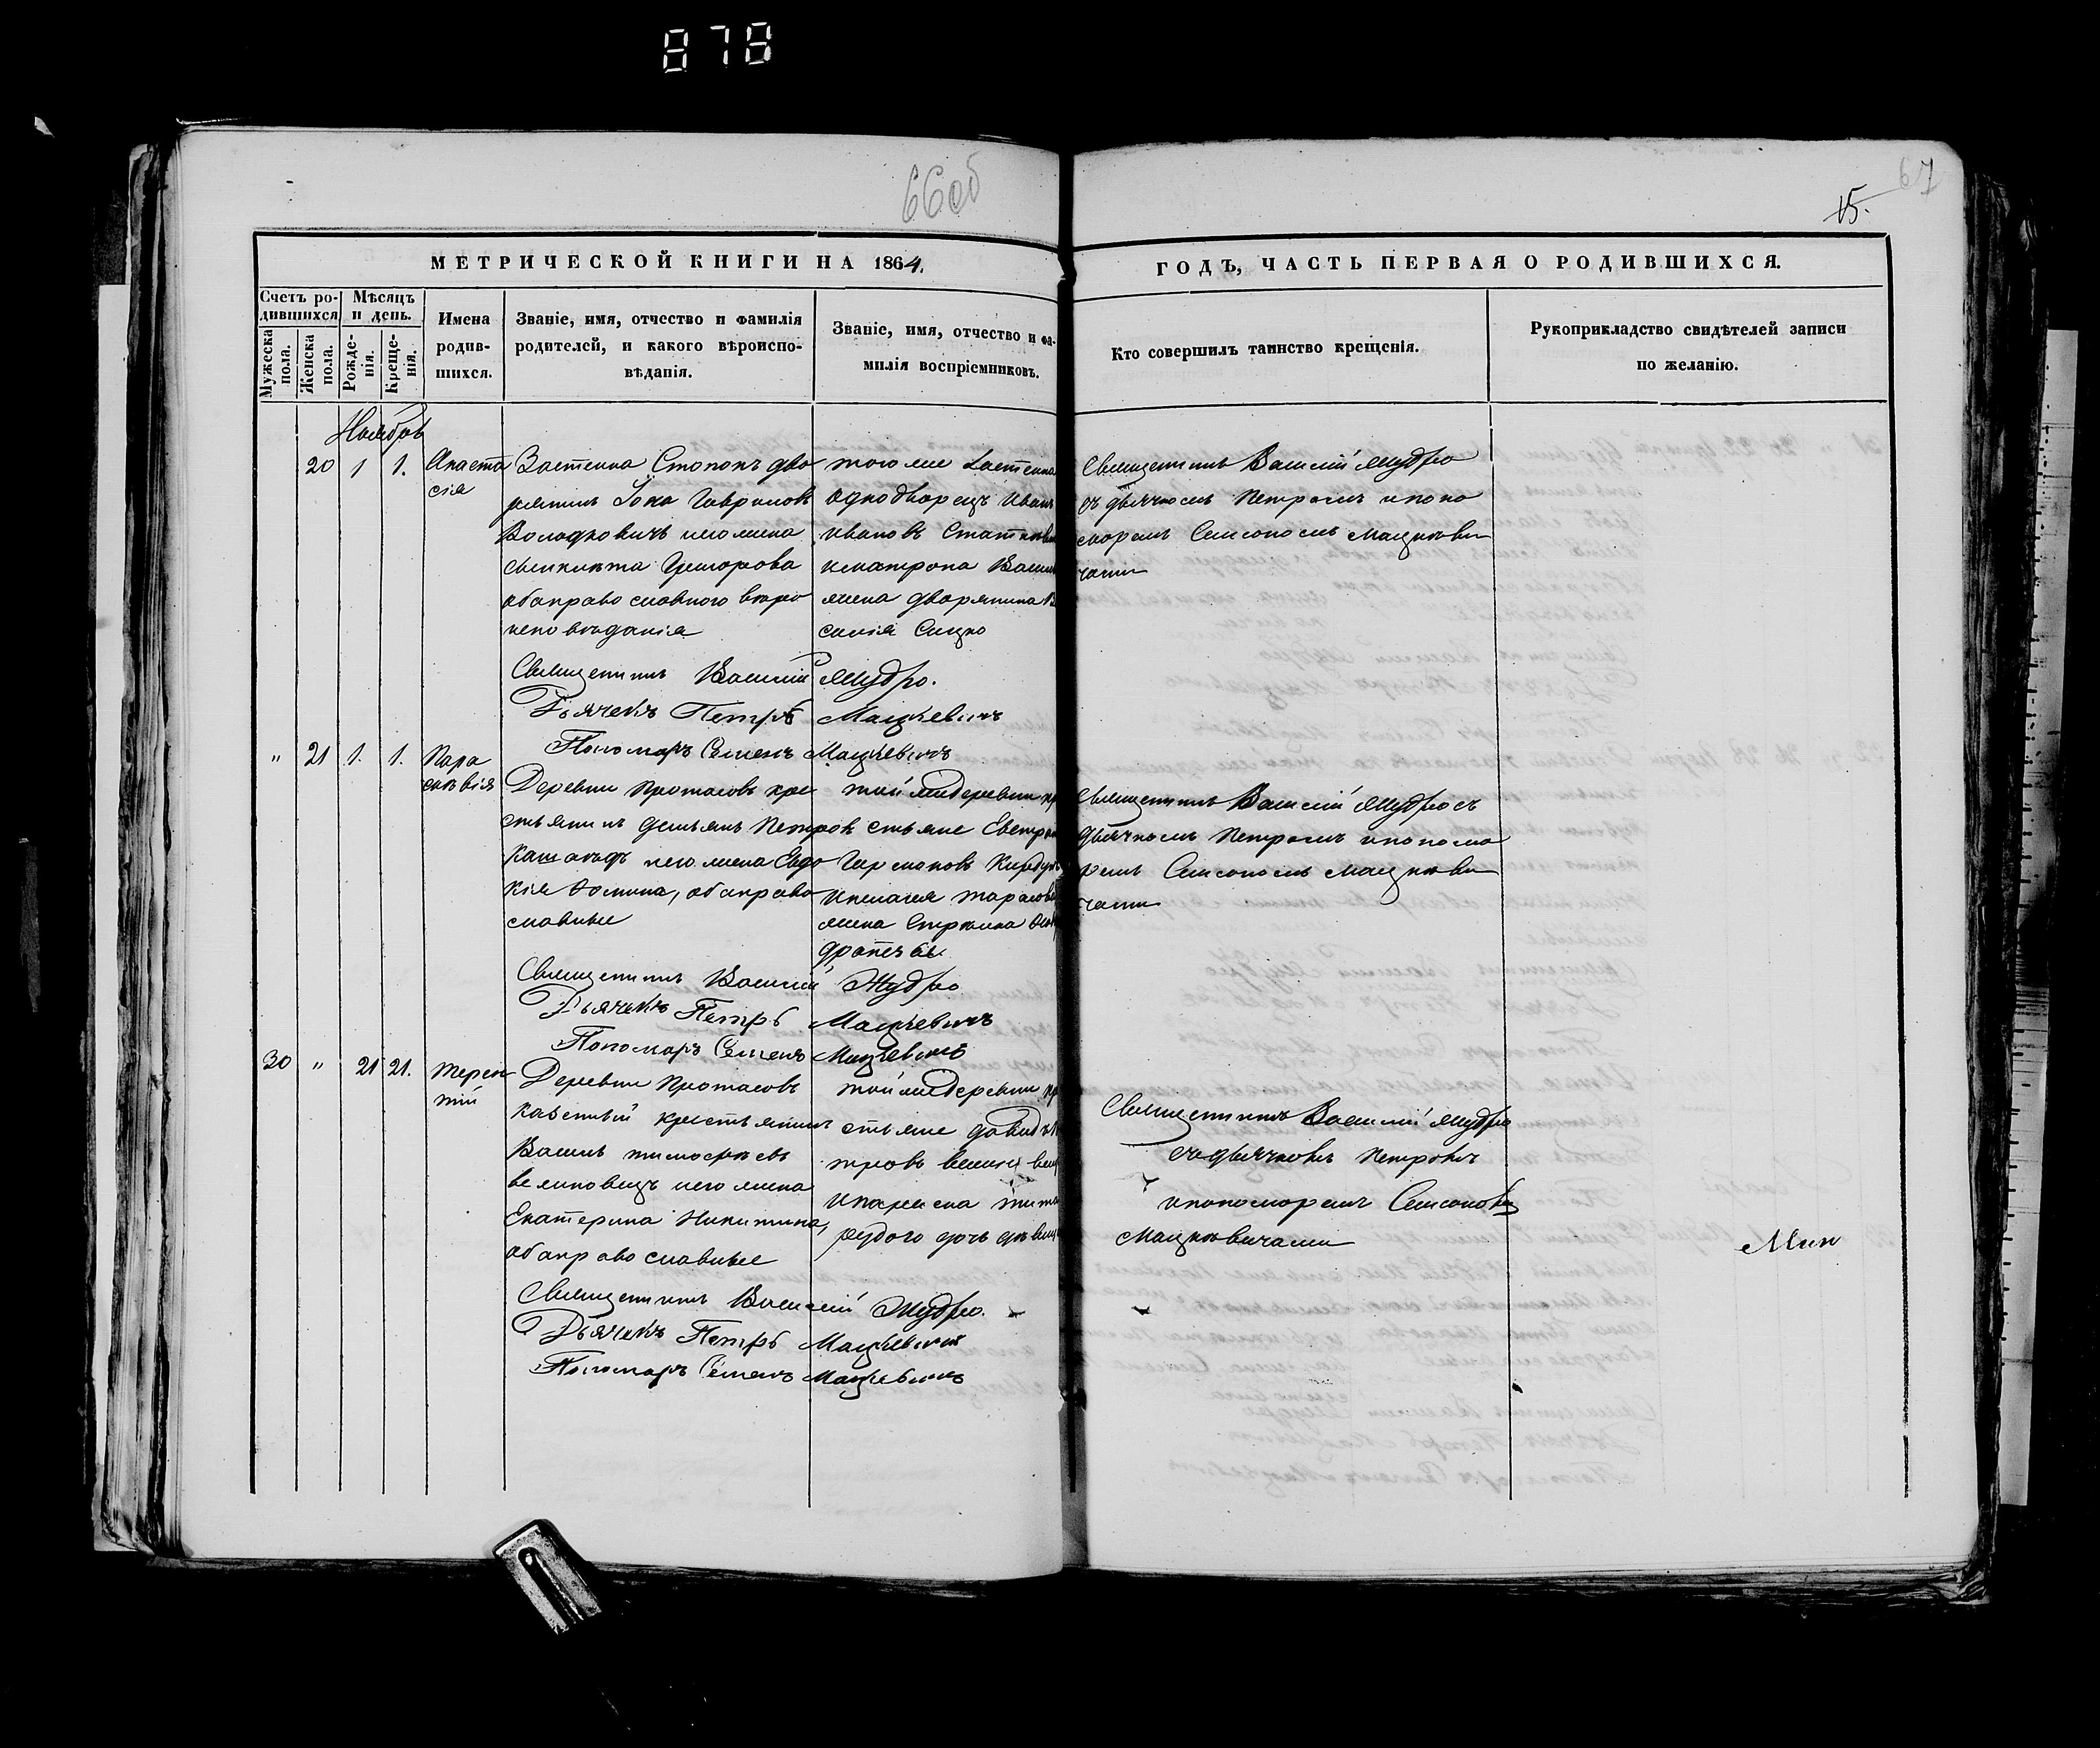 878
66об
67
15.
МЕТРИЧЕСКОЙ КНИГИ НА 1864.
ГОДЪ, ЧАСТЬ ПЕРВАЯ О РОДИВШИХСЯ.
Счетъ ро-
дившихся
Мужеска
пола.
Женска
пола.
Мѣсяцъ
и день.
Рожде-
нія.
Креще-
нія.
Имена
родив-
шихся.
Званіе, имя, отчество и фамилія
родителей, и какого вѣроиспо-
вѣданія.
Званіе, имя, отчество и фа-
милія воспріемниковъ.
Кто совершилъ таинство крещенія.
Рукоприкладство свидѣтелей записи
по желанію.
Ноябрь
20 1 1. Анаста
сія
Застенка дво
рянинъ
Володковичъ и его жена
Григорова
оба православного вѣро
исповѣданія
того же застенка
однодворецъ Иванъ
Ивановъ
и матрона
жена дворянина
Сицко
Священникъ Василій Мудро
съ дьячкомъ Петромъ и поно
маремъ Самсономъ Мацкеви
чами
Священникъ Василій Мудро.
Дьячекъ Петръ Мацкевичъ
Пономарь Семенъ Мацкевичъ
" 21 1. 1. Пара
скевія
Деревни Протасовъ кре
стьянинъ Демьянъ Петровъ
и его жена Евдо
кія Фомина, оба право
славные
той же деревни кр
стьяне
и Пелагея Тарасова
жена
Священникъ Василій Мудро съ
дьячкомъ Петромъ и понома
ремъ Самсономъ Мацкеви
чами
Священникъ Василій Мудро
Дьячекъ Петръ Мацкевичъ
Пономарь Семенъ Мацкевичъ
30 " 21 21. Терен
тій
Деревни Протасовъ
казенный крестьянинъ
Василь Тимофеевъ
и его жена
Екатерина Никитина,
оба православные
той же деревни кр
стьяне Давидъ
тровъ
рудого дочь девица
Священникъ Василій Мудро
съ дьячкомъ Петромъ
и пономаремъ Самсономъ
Мацкевичами
Мин
Священникъ Василій Мудро.
Дьячекъ Петръ Мацкевичъ
Пономарь Семенъ Мацкевичъ